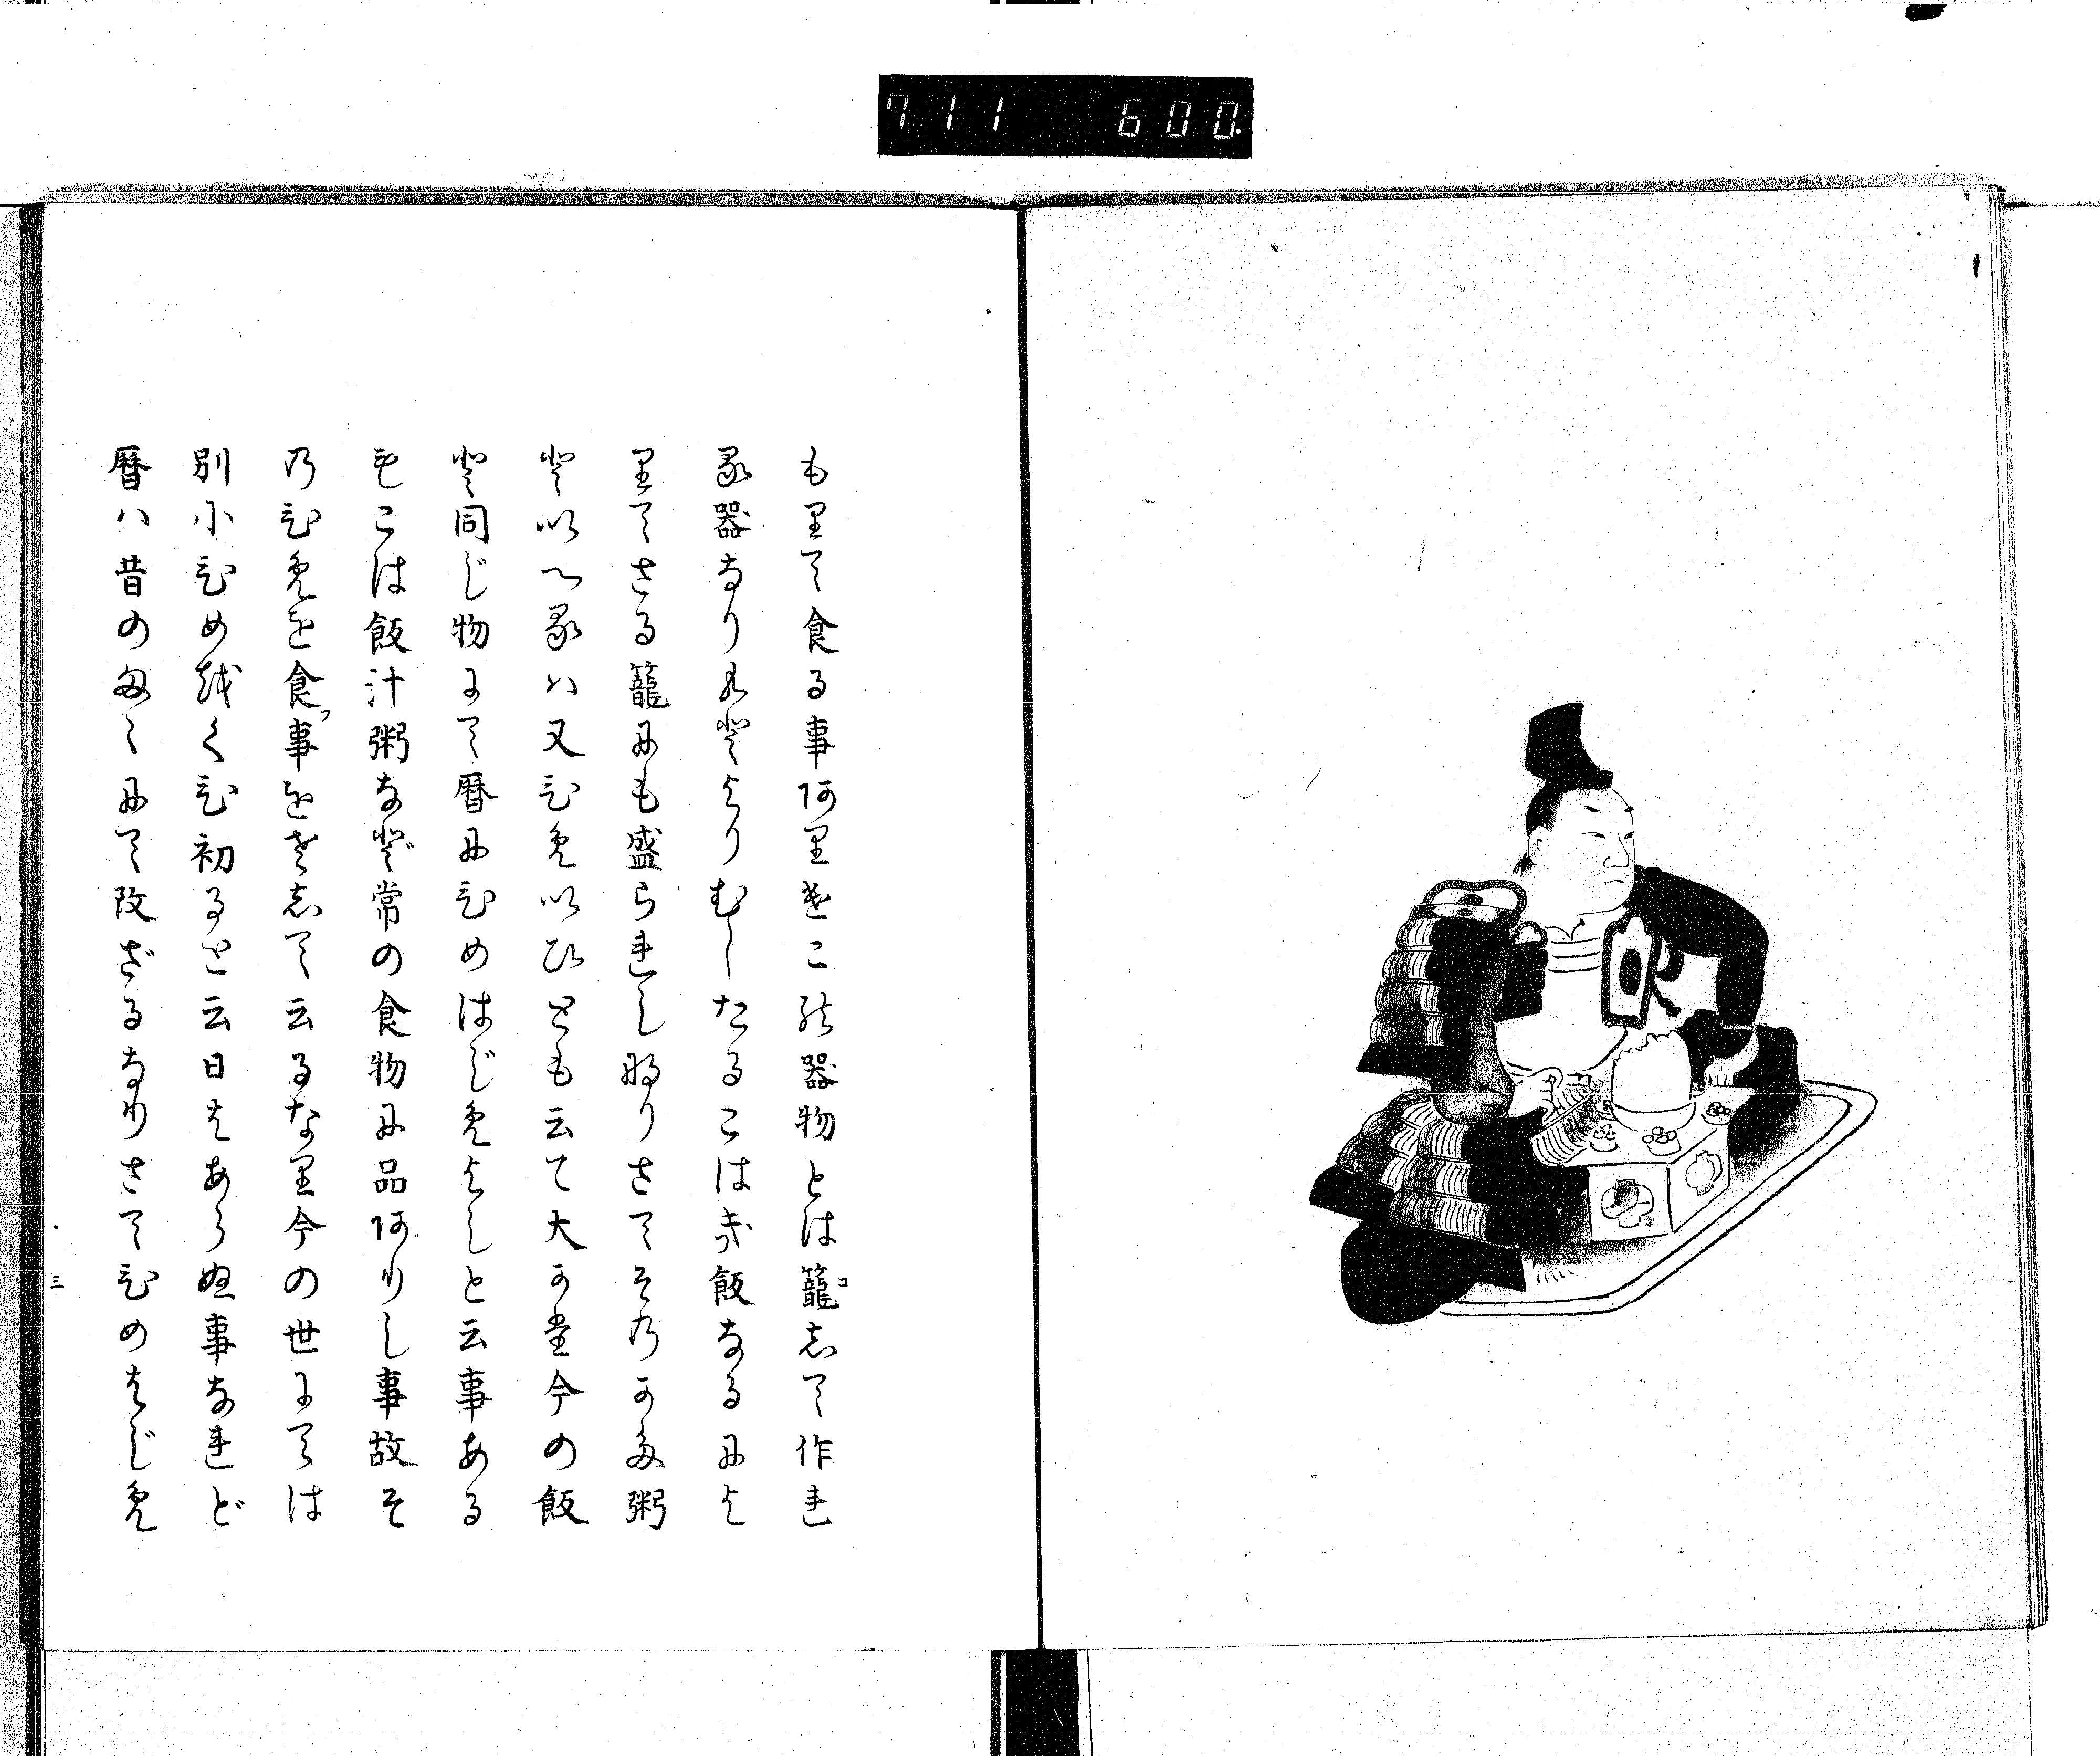 711 600.
もりて食る事ありきこの器物とは籠コして作れ
る器なり九とよりむしたるこは飯なるによ
りてさる籠にも盛られしなりさてそのかた粥
といへるは又ひめいひとも云て大かた今の飯
と同じ物にて暦にひめはじめよしと云事ある
もこは飯汁粥など常の食物に品ありし事故そ
のひめを食フ事をさして云るなり今の世にては
別にひめをくひ初ると云日はあらぬ事なれど
暦は昔のまゝにて改ざるなりさてひめはじめ
三